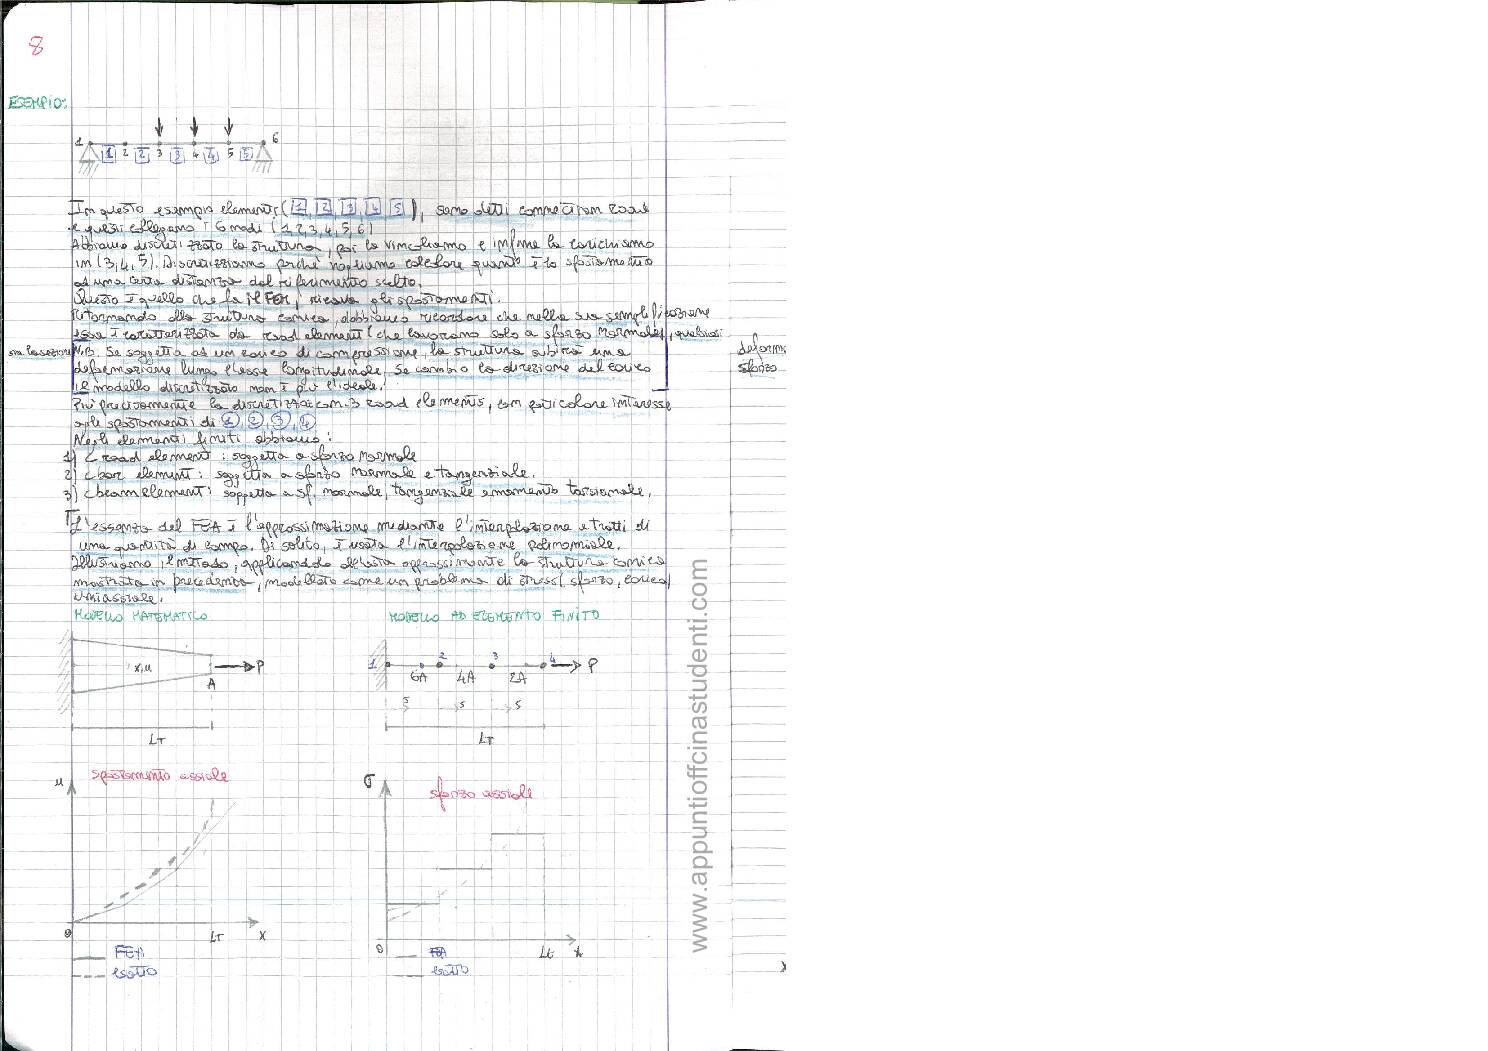 8
ESEMPIO:
1 1 2 2 3 3 4 4 5 5 6
In questo esempio elementi (1 2 3 4 5), sono detti connection road
e questi collegano i 6 nodi (1,2,3,4,5,6)
Abbiamo discretizzato la struttura, poi la vincoliamo e infine la carichiamo
in (3,4,5). Discretizziamo perché vogliamo calcolare quant'è lo spostamento
ad una certa distanza dal riferimento scelto.
Questo è quello che fa il FEM, ricava gli spostamenti.
Ritornando alla struttura conica, dobbiamo ricordare che nella sua semplificazione
essa è caratterizzata da road elementi che lavorano solo a sforzo normale, qualsiasi
N.B. Se soggetta ad un carico di compressione, la struttura subirà una
deformazione lungo l'asse longitudinale. Se cambio la direzione del carico
il modello discretizzato non è più l'ideale.
deforma
sforzo
Più precisamente la discretizzo con 3 road elements, con particolare interesse
agli spostamenti di 1, 2, 3, 4
Negli elementi finiti abbiamo:
1) Croad element: soggetta a sforzo normale
2) Cbar element: soggetta a sforzo normale e tangenziale.
3) Cbeam element: soggetta a sf. normale, tangenziale e momento torsionale.
L'essenza del FEA è l'approssimazione mediante l'interpolazione a tratti di
una quantità di campo. Di solito, è usata l'interpolazione polinomiale.
Illustriamo il metodo, applicandolo all'asta approssimante la struttura conica
mostrata in precedenza, modellato come un problema di stress (sforzo, carico)
uniassiale.
MODELLO MATEMATICO
MODELLO AD ELEMENTO FINITO
x,u P A LT
1 2 3 4 P
6A 4A 2A
s s s
LT
u spostamento assiale
σ sforzo assiale
0 LT x
0 Lt x
FEA
esatto
FEA
esatto
www.appuntioffcinastudenti.com